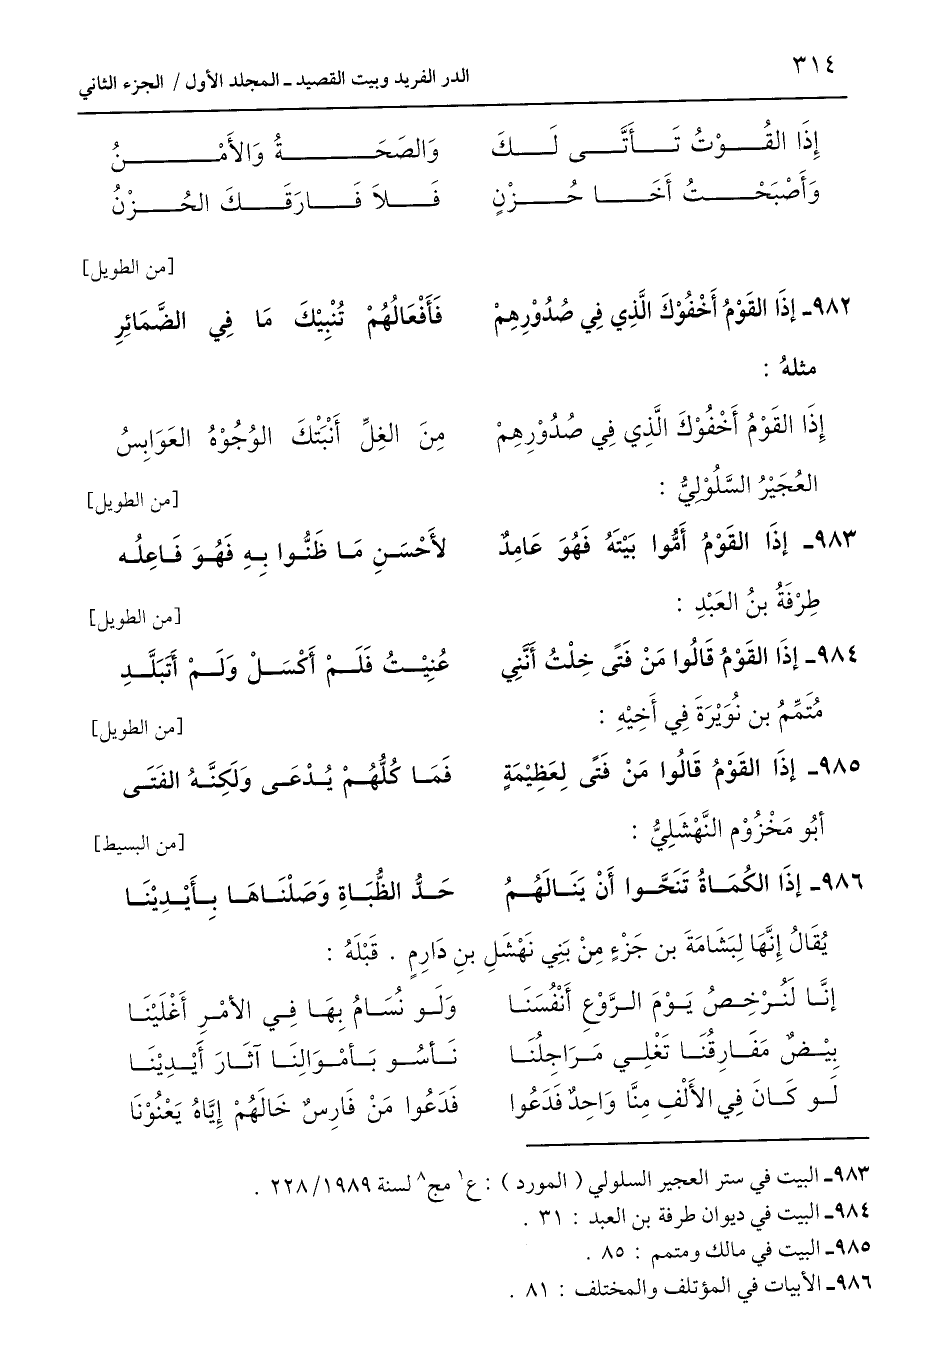 ٣١٤
الدر الفريد وبيت القصيد ـ المجلد الأول / الجزء الثاني
إِذَا القُـــوْتُ تَـــأَتَّـــى لَـــكَ وَالصَحَـــةُ وَالأَمْـــنُ
وَأَصْبَحْـــتُ أَخَـــا حُـــزْنٍ فَـــلاَ فَـــارَقَـــكَ الحُـــزْنُ
[من الطويل]
٩٨٢ـ إِذَا القَوْمُ أَخْفُوْكَ الَّذِي فِي صُدُوْرِهِمْ فَأَفْعَالُهُمْ تُنْبِيْكَ مَا فِي الضَّمَائِرِ
مثلهُ :
إِذَا القَوْمُ أَخْفُوْكَ الَّذِي فِي صُدُوْرِهِمْ مِنَ الغِلِّ أَنْبَتْكَ الوُجُوْهُ العَوَابِسُ
العُجَيْرُ السَّلُولِيُّ :
[من الطويل]
٩٨٣ـ إِذَا القَوْمُ أَمُّوا بَيْتَهُ فَهُوَ عَامِدٌ لأَحْسَنِ مَا ظَنُّوا بِهِ فَهُوَ فَاعِلُه
طِرْفَةُ بنُ العَبْدِ :
[من الطويل]
٩٨٤ـ إِذَا القَوْمُ قَالُوا مَنْ فَتًى خِلْتُ أَنَّنِي عُنِيْتُ فَلَمْ أَكْسَلْ وَلَمْ أَتَبَلَّدِ
مُتَمِّمُ بن نُوَيْرَةَ فِي أَخِيْهِ :
[من الطويل]
٩٨٥ـ إِذَا القَوْمُ قَالُوا مَنْ فَتًى لِعَظِيْمَةٍ فَمَا كُلُّهُمْ يُدْعَى وَلَكِنَّهُ الفَتَى
أَبُو مَخْزُوْم النَّهْشَلِيُّ :
[من البسيط]
٩٨٦ـ إِذَا الكُمَاةُ تَنَحَّوا أَنْ يَنَالَهُمُ حَدُّ الظُّبَاةِ وَصَلْنَاهَا بِأَيْدِيْنَا
يُقَالُ إِنَّهَا لِبَشَامَةَ بن جَزْءٍ مِنْ بَنِي نَهْشَلِ بنِ دَارِمٍ . قَبْلَهُ :
إِنَّا لَنُرْخِصُ يَوْمَ الرَّوْعِ أَنْفُسَنَا وَلَو نُسَامُ بِهَا فِي الأَمْرِ أَغْلَيْنَا
بِيْضٌ مَفَارِقُنَا تَغْلِي مَرَاجِلُنَا نَأْسُو بَأَمْوَالِنَا آثَارَ أَيْدِيْنَا
لَو كَانَ فِي الأَلْفِ مِنَّا وَاحِدٌ فَدَعُوا فَدَعُوا مَنْ فَارِسٌ خَالَهُمْ إِيَّاهُ يَعْنُوْنَا
٩٨٣ـ البيت في ستر العجير السلولي ( المورد ) : ع١ مج٨ لسنة ٢٢٨/١٩٨٩ .
٩٨٤ـ البيت في ديوان طرفة بن العبد : ٣١ .
٩٨٥ـ البيت في مالك ومتمم : ٨٥ .
٩٨٦ـ الأبيات في المؤتلف والمختلف : ٨١ .